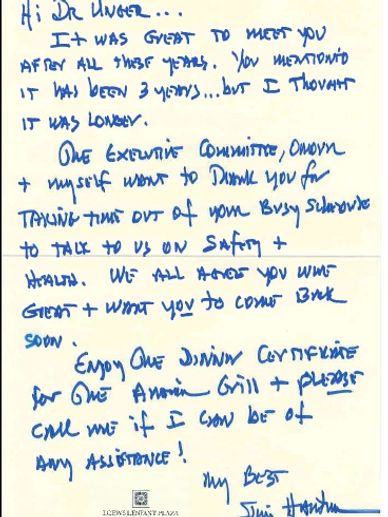 Hi Dr Unger...
It was great to meet you
after all these years. You mention'd
it has been 3 years...but I thought
it was longer.
Our Executive Committee,
+ myself want to thank you for
taking time out of your busy schedule
to talk to us on Safety +
Health. We all agree you were
great + want you to come back
soon.
Enjoy our dinner certificate
for our Grill + please
call me if I can be of
any assistance!
My Best
Jim
LOEWS L'ENFANT PLAZA